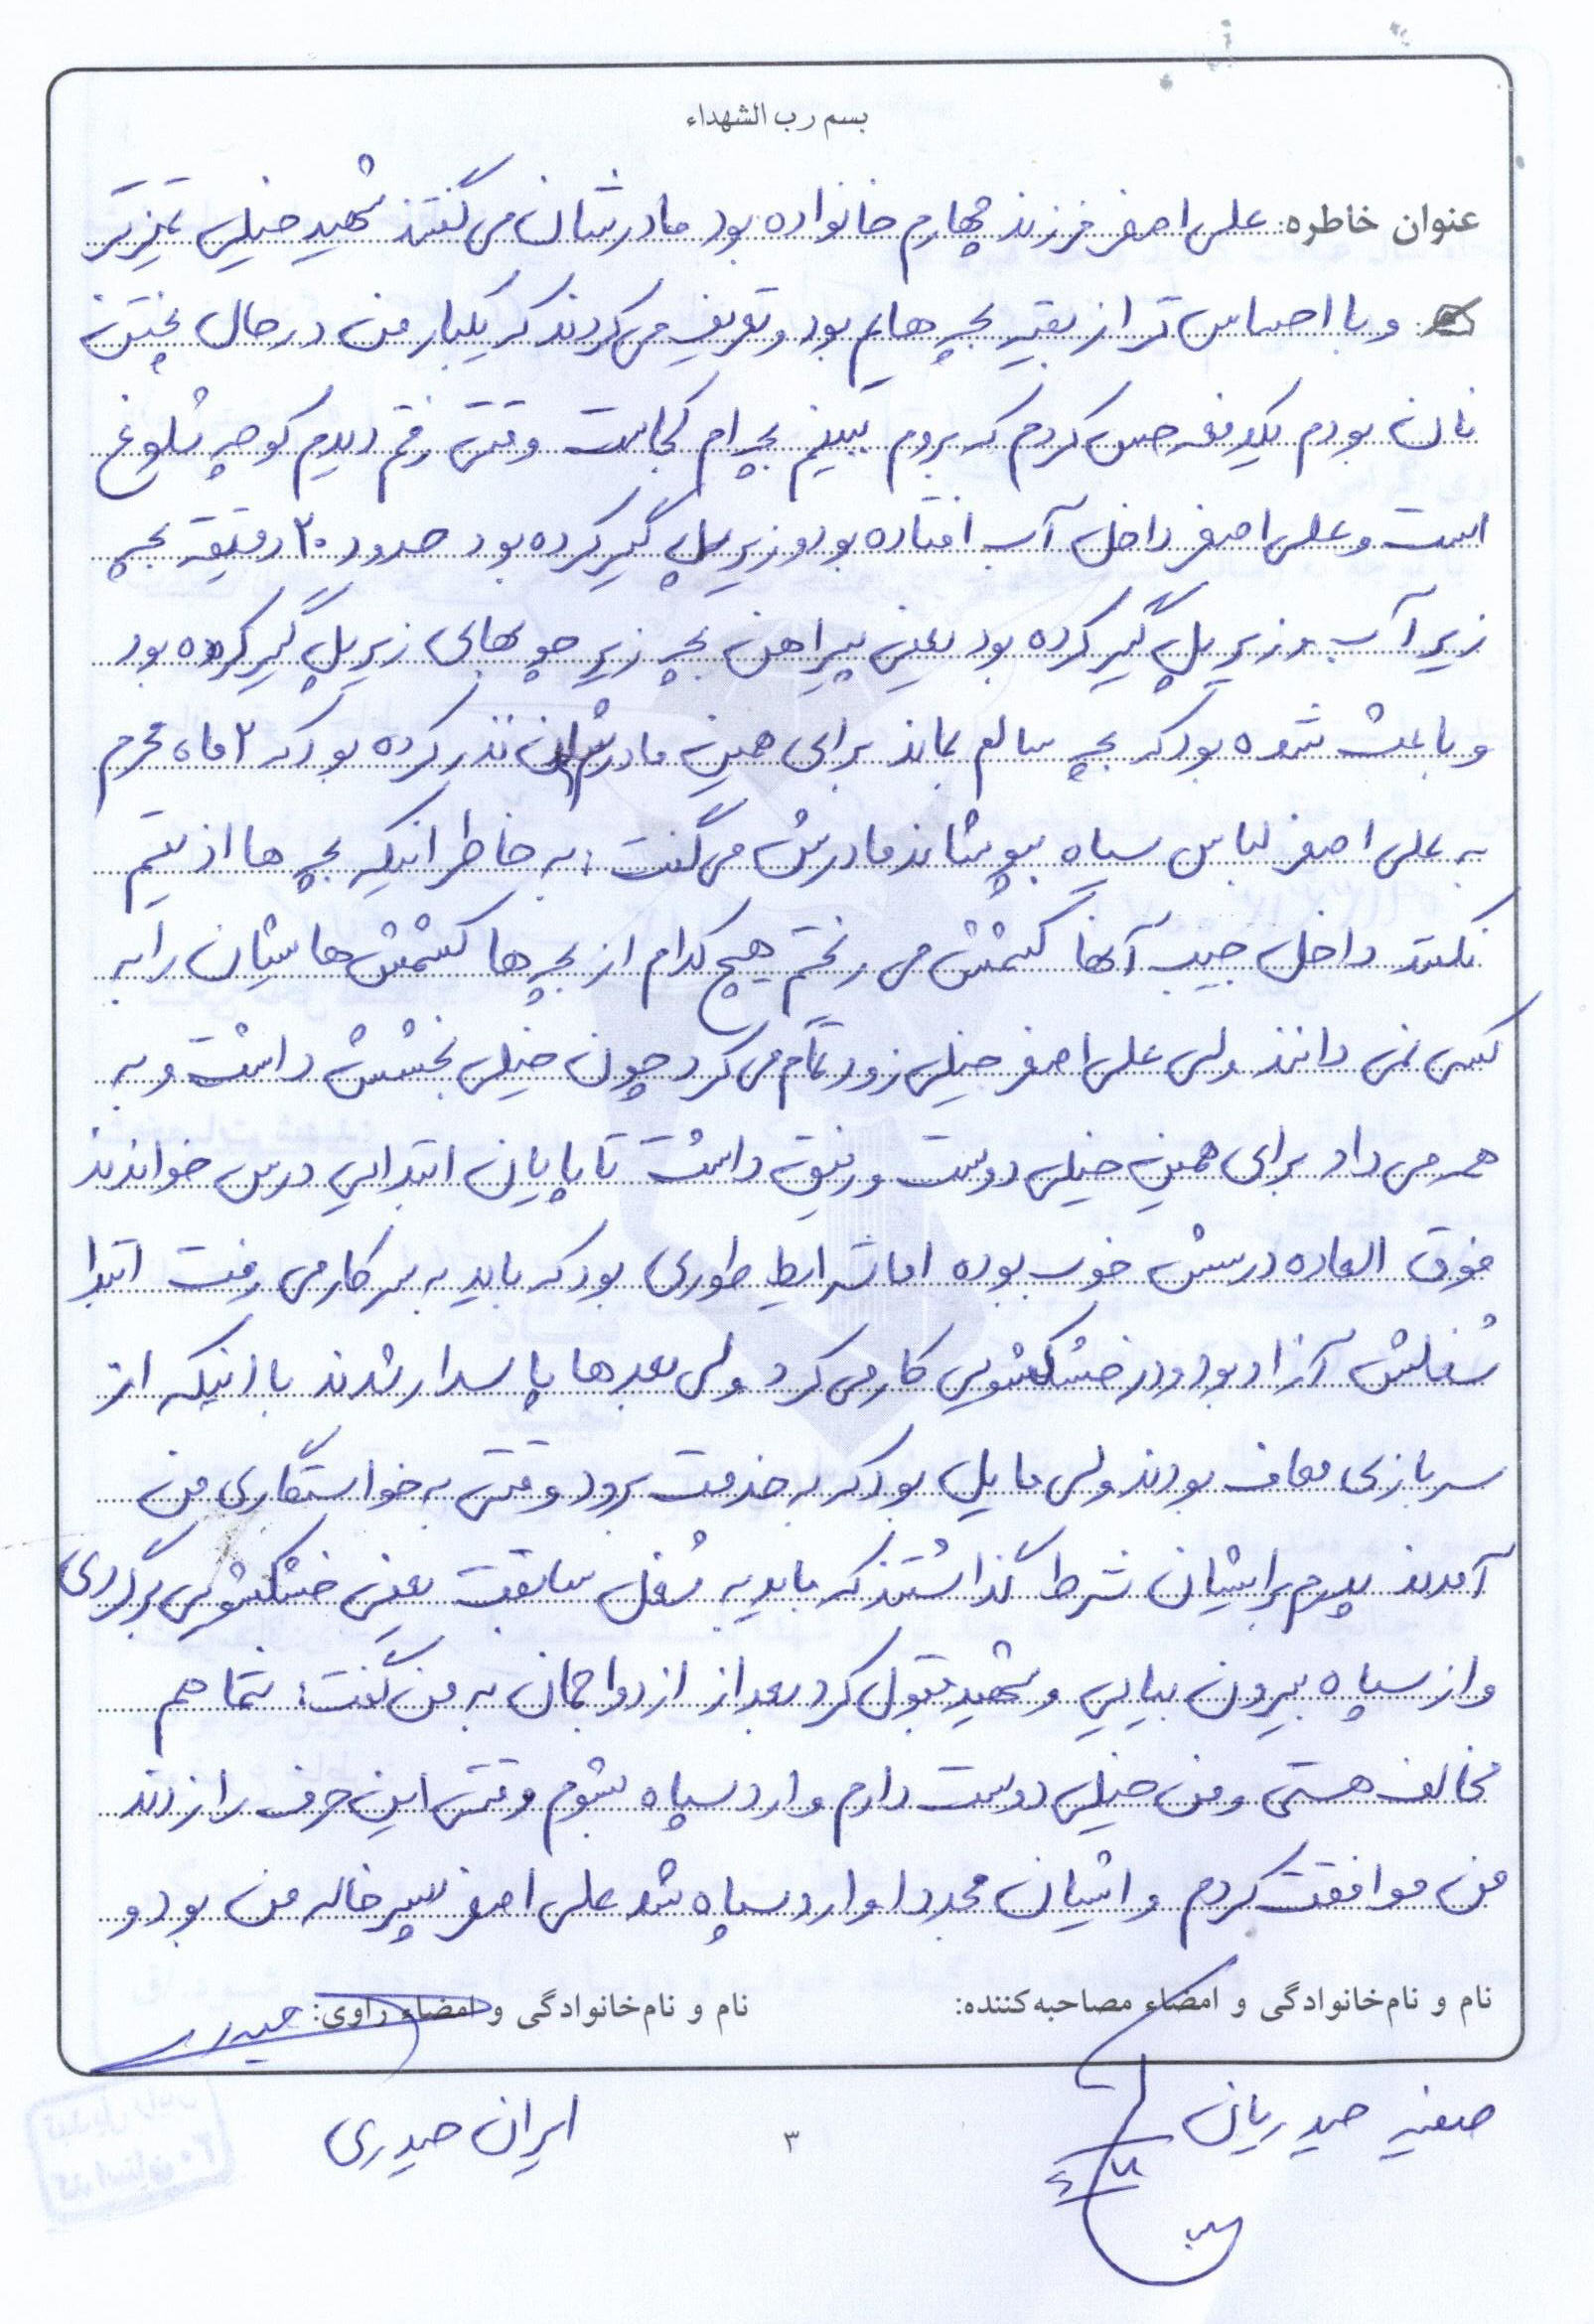 بسم رب الشهداء
عنوان خاطره: علی اصغر فرزند چهارم خانواده بود مادرشان می گفتند شهید خیلی تمیزتر
و با احساس تر از بقیه بچه هایم بود و تعریف می کردند که یکبار من در حال پختن
نان بودم یکدفعه حس کردم که بروم ببینم بچه ام کجاست وقتی رفتم دیدم کوچه شلوغ
است و علی اصغر داخل آب افتاده بود و زیر پل گیر کرده بود حدود ۲۰ دقیقه بچه
زیر آب و زیر پل گیر کرده بود یعنی پیراهن بچه زیر چوبهای زیر پل گیر کرده بود
و باعث شده بود که بچه سالم بماند برای همین مادرشان نذر کرده بود که ۲ ماه محرم
به علی اصغر لباس سیاه بپوشاند مادرش می گفت: به خاطر اینکه بچه ها اذیتم
نکنند داخل جیب آنها کشمش می ریختم هیچ کدام از بچه ها کشمش هایشان را به
کسی نمی دادند ولی علی اصغر خیلی زود تمام می کرد چون خیلی بخشش داشت و به
همه می داد برای همین خیلی دوست و رفیق داشت تا پایان ابتدایی درس خواندند
فوق العاده درسش خوب بوده اما شرایط طوری بود که باید به سر کار می رفت ابتدا
شغلش آزاد بود و در خشکشویی کار می کرد ولی بعدها پاسدار شدند با اینکه از
سربازی معاف بودند ولی مایل بود که به خدمت برود وقتی به خواستگاری من
آمدند پدرم برایشان شرط گذاشتند که باید به شغل سابقت یعنی خشکشویی برگردی
و از سپاه بیرون بیایی و شهید قبول کرد بعد از ازدواجمان به من گفت: شما هم
مخالف هستی و من خیلی دوست دارم وارد سپاه بشوم وقتی این حرف را زدند
من موافقت کردم و ایشان مجددا وارد سپاه شد علی اصغر پسر خاله من بود و
نام و نام‌خانوادگی و امضاء مصاحبه‌کننده:
نام و نام‌خانوادگی و امضاء راوی: حیدری
صفیه حیدریان
ایران حیدری
۳